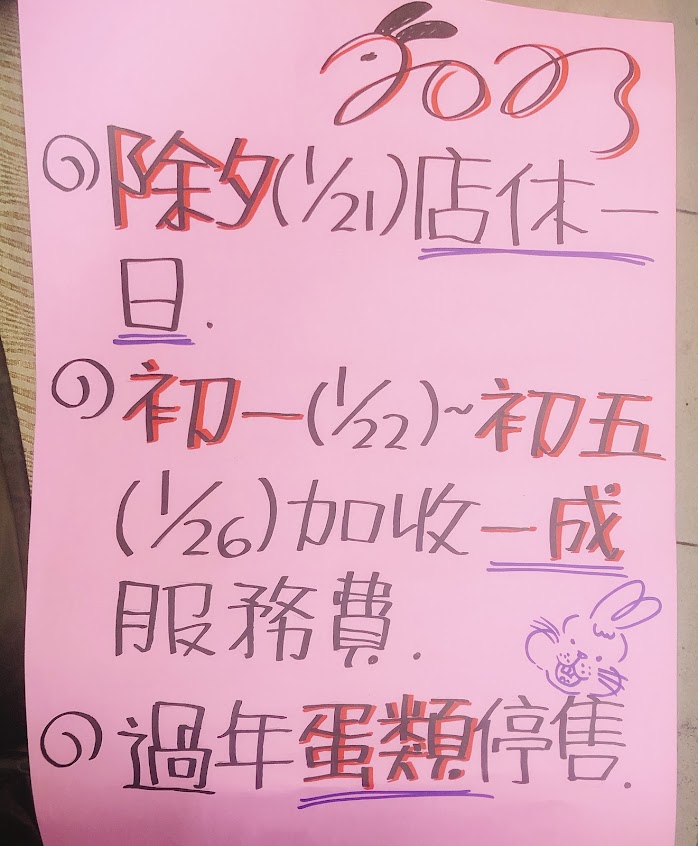 2023
除夕(1/21)店休一
日.
初一(1/22)~初五
(1/26)加收一成
服務費.
過年蛋類停售.